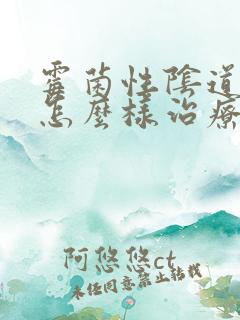 霉菌性陰道
怎麼樣治療
阿悠悠ct
未经同意禁止转载